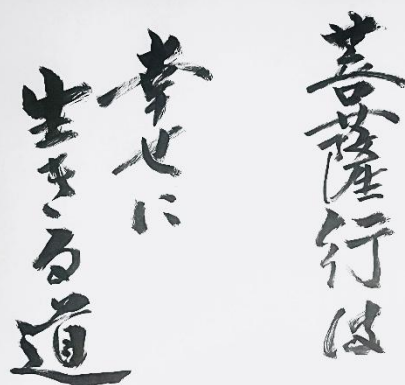 菩薩行は
幸せに
生きる道